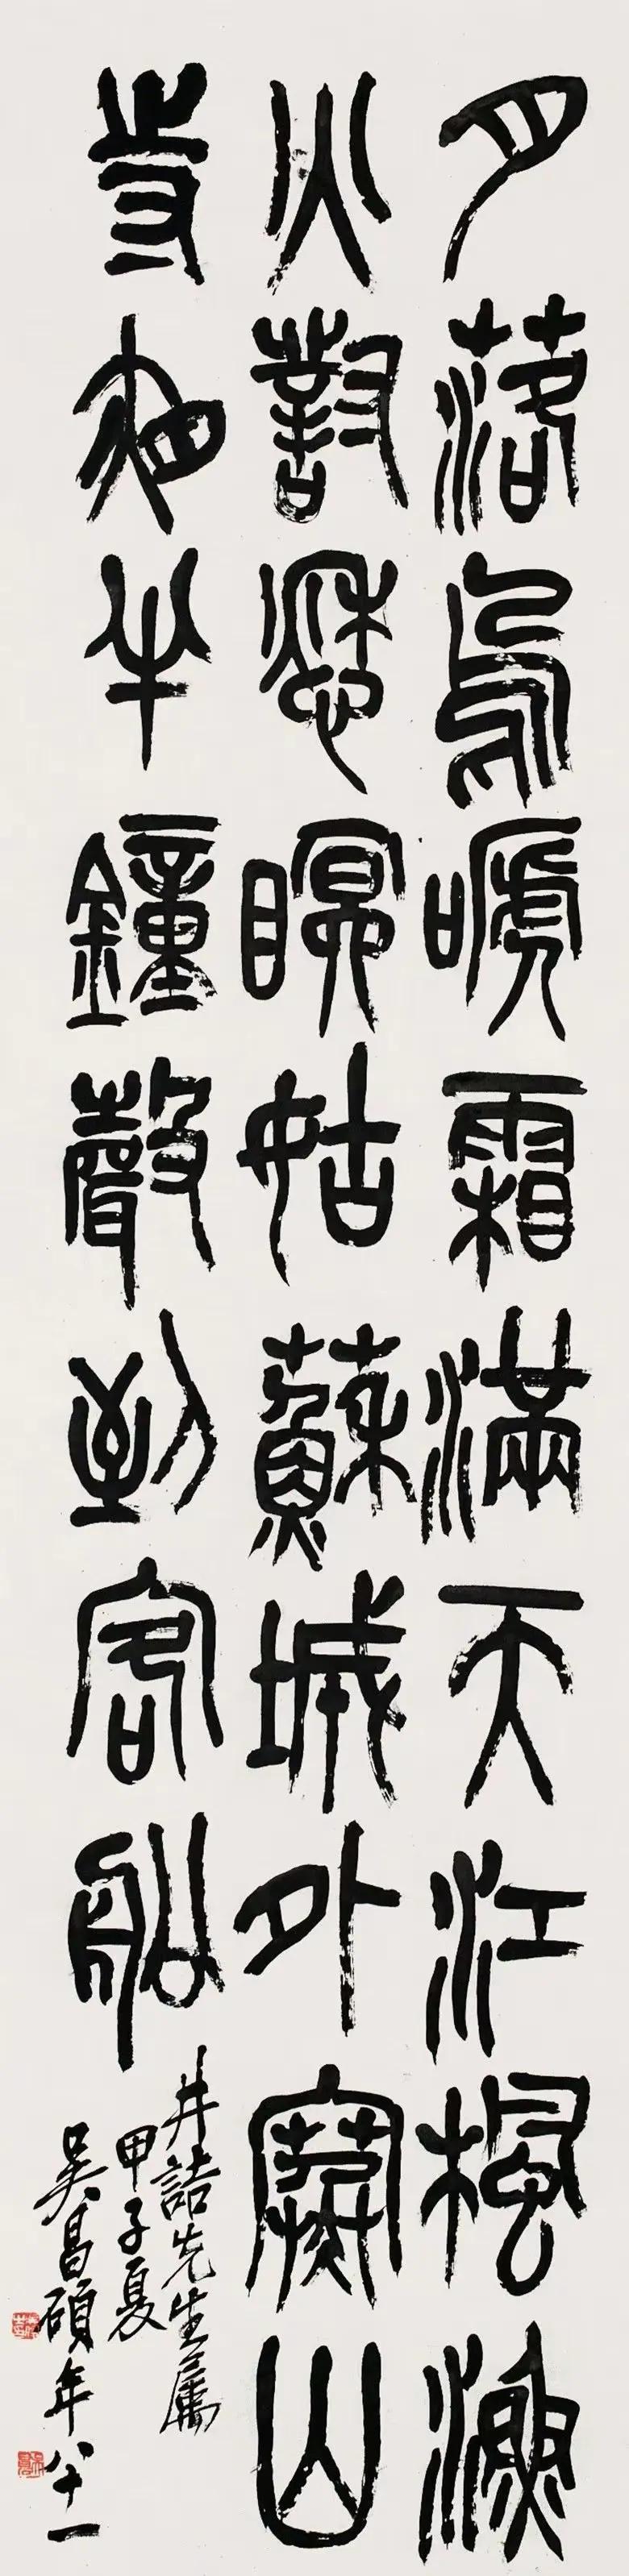 月落烏嗁霜滿天江楓漁
火對愁瞑姑蘇城外寒山
寺夜半鐘聲到客船
井詰先生属
甲子夏
吳昌碩年八十一